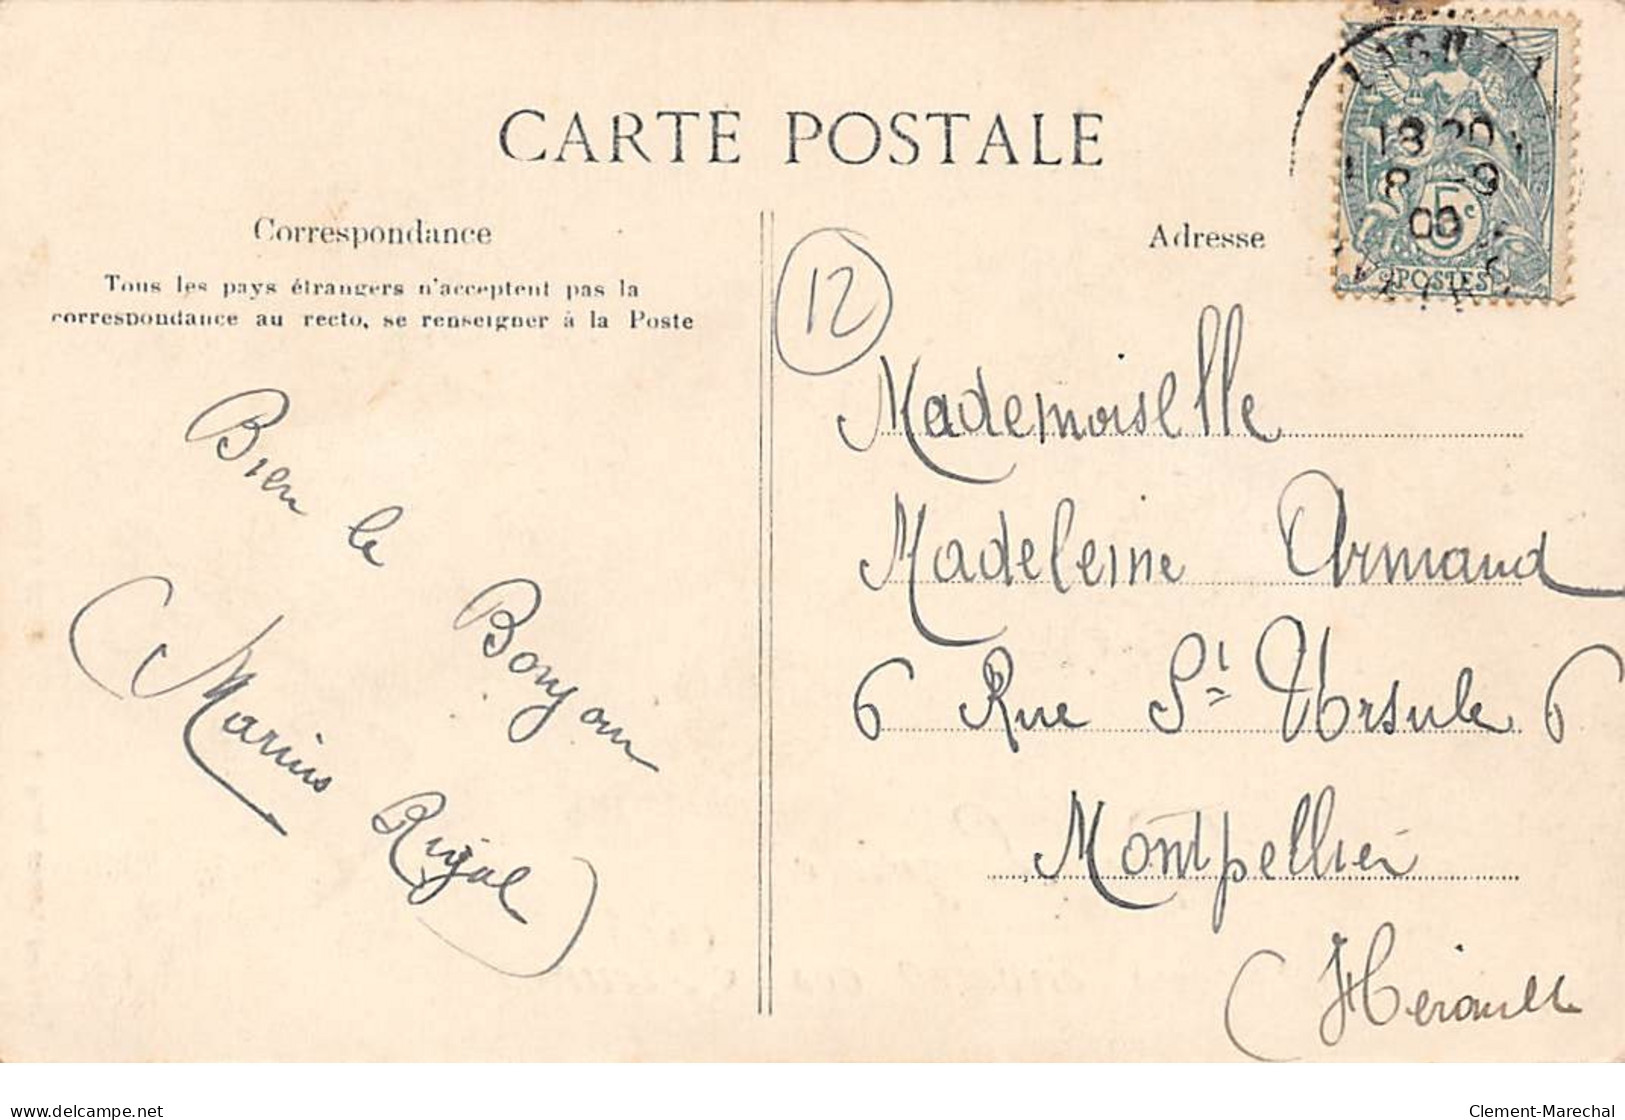 CARTE POSTALE
Correspondance
Tous les pays étrangers n'acceptent pas la
correspondance au recto, se renseigner à la Poste
Bien le Bonjour
(Marius Rigal)
12
Adresse
18 20
8 -9
5c
POSTES
Mademoiselle
Madeleine Armand
6 Rue St Ursule 6
Montpellier
(Hérault
www.delcampe.net
Clement-Marechal